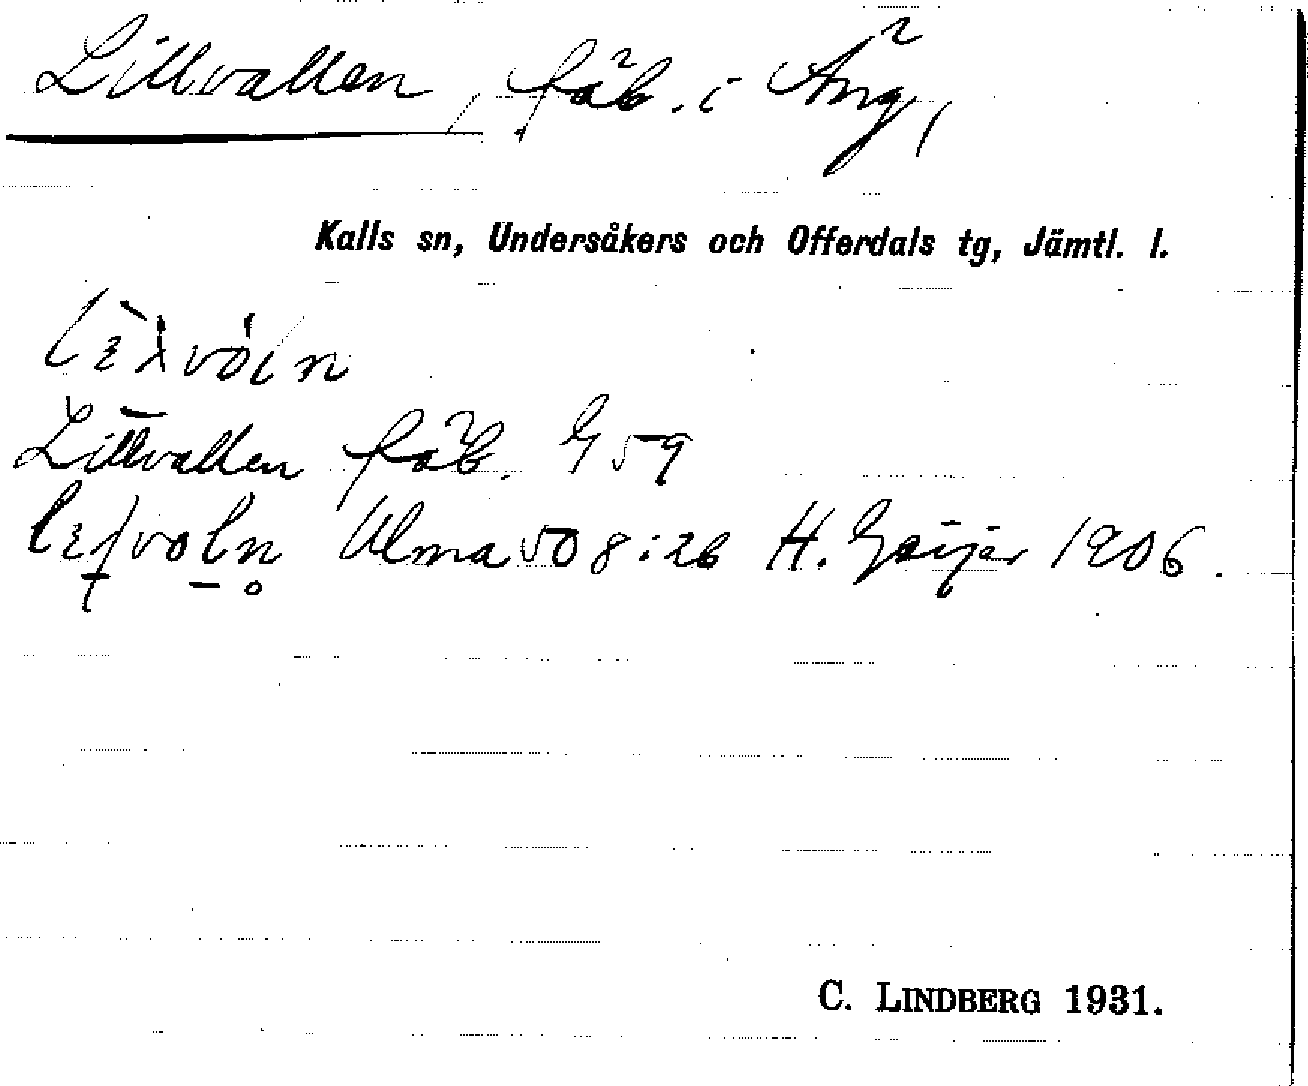 Lillvallen, fäb. i Äng,
Kalls sn, Undersåkers och Offerdals tg, Jämtl. l.
Lillvallen fäb. G 59
Ulma 508:26 H. Geijer 1906.
C. LINDBERG 1931.